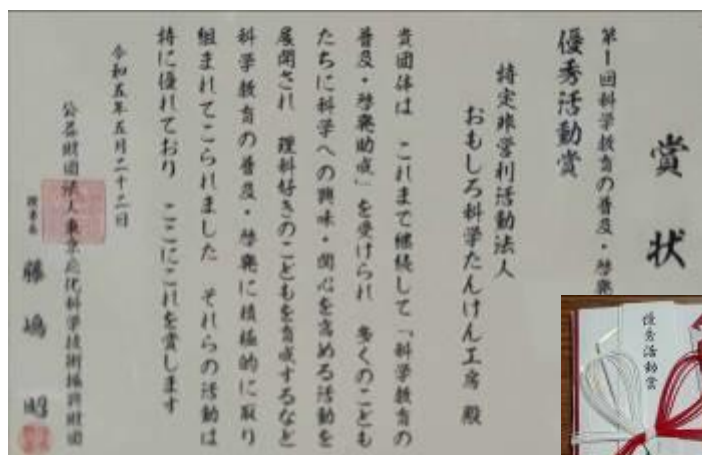 賞状
第1回科学教育の普及・啓発
優秀活動賞
特定非営利活動法人
おもしろ科学たんけん工房 殿
貴団体は これまで継続して「科学教育の
普及・啓発助成」を受けられ 多くのこども
たちに科学への興味・関心を高める活動を
展開され 理科好きのこどもを育成するなど
科学教育の普及・啓発に積極的に取り
組まれてこられました それらの活動は
特に優れており ここにこれを賞します
令和五年五月二十二日
公益財団法人東京応化科学技術振興財団
理事長 藤嶋 昭
優秀活動賞